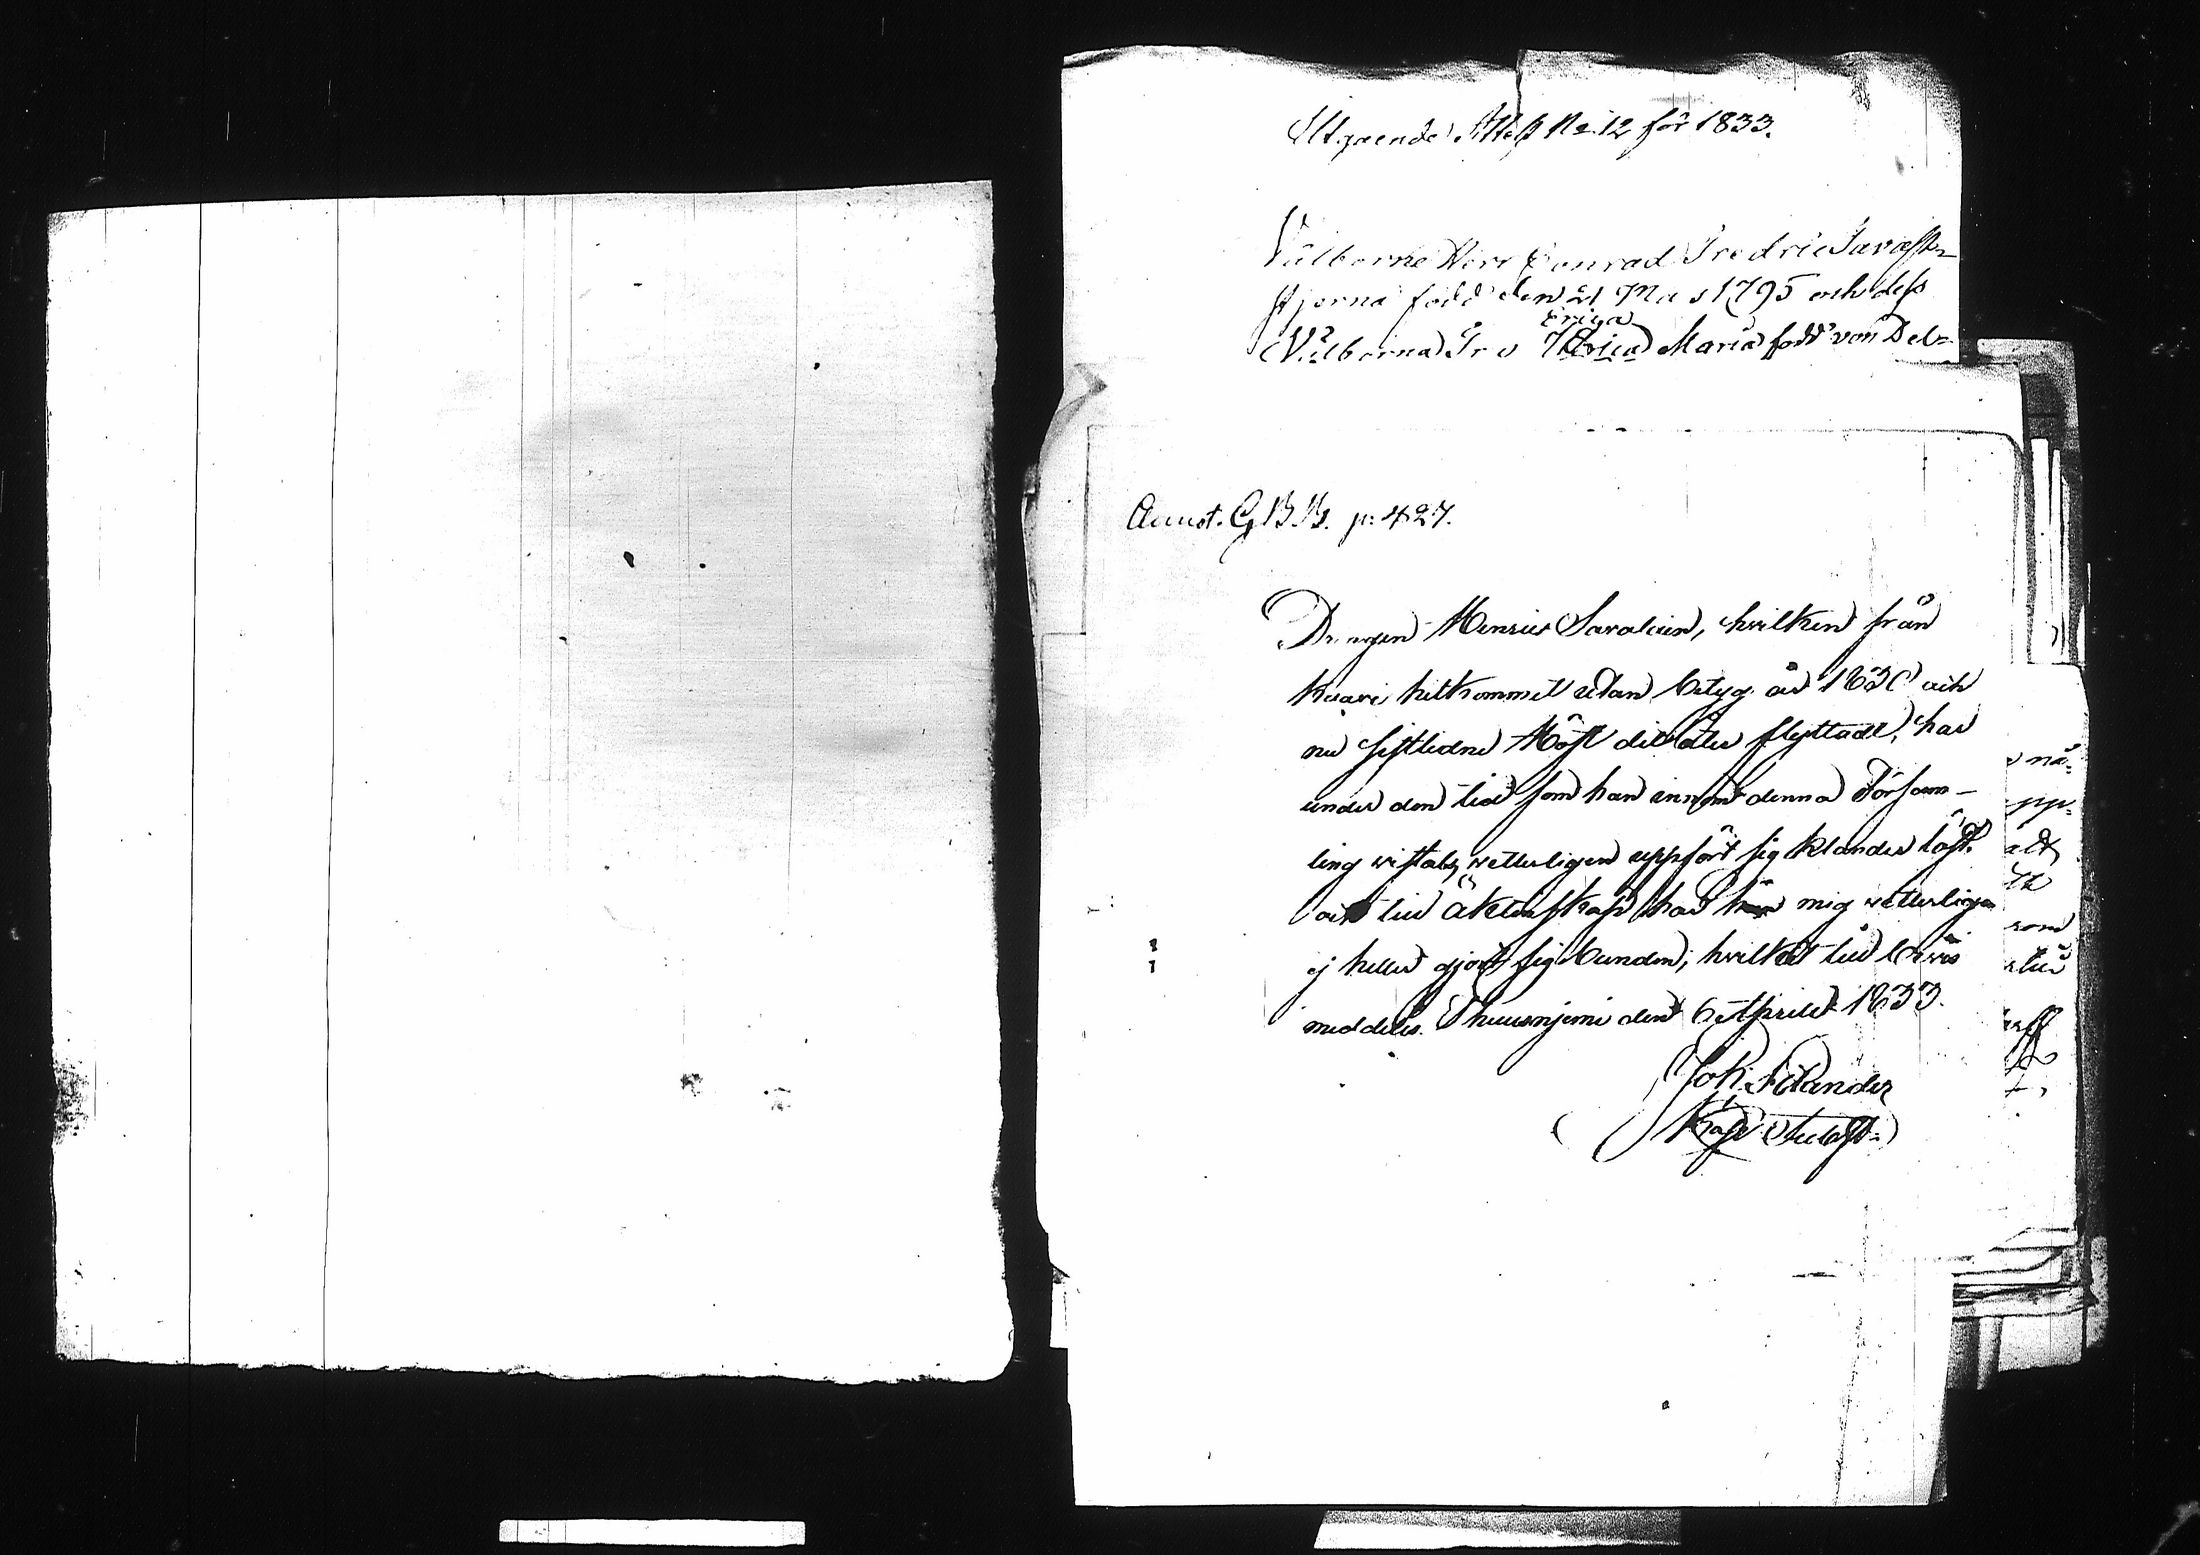 Utgående Attest No 12 för 1833.
Välborne Herr Conrad Fredric Tavast-
stjerna född den 21 Mars 1795 och dess
Eriga
Välborna Fru Ulrica Maria född von Deb-
Annot. G.B.B. p: 427.
Drengen Henric Savolain, hvilken från
Kaavi hitkommit utan betyg år 1830 och
nu sistledne Höst dit åter flyttadt, har
under den tid som han innom denna Försam-
ling vistats, vetterligen uppfört sig klanderlöst.
och till Äktenskap har mig vetterligen
ej heller gjort sig bunden, hvilket till bevis
meddeles. Thuusnjemi den 6 Aprill 1833.
Joh. Felander
Kap: Subst:
nå-
upp-
aldt
som